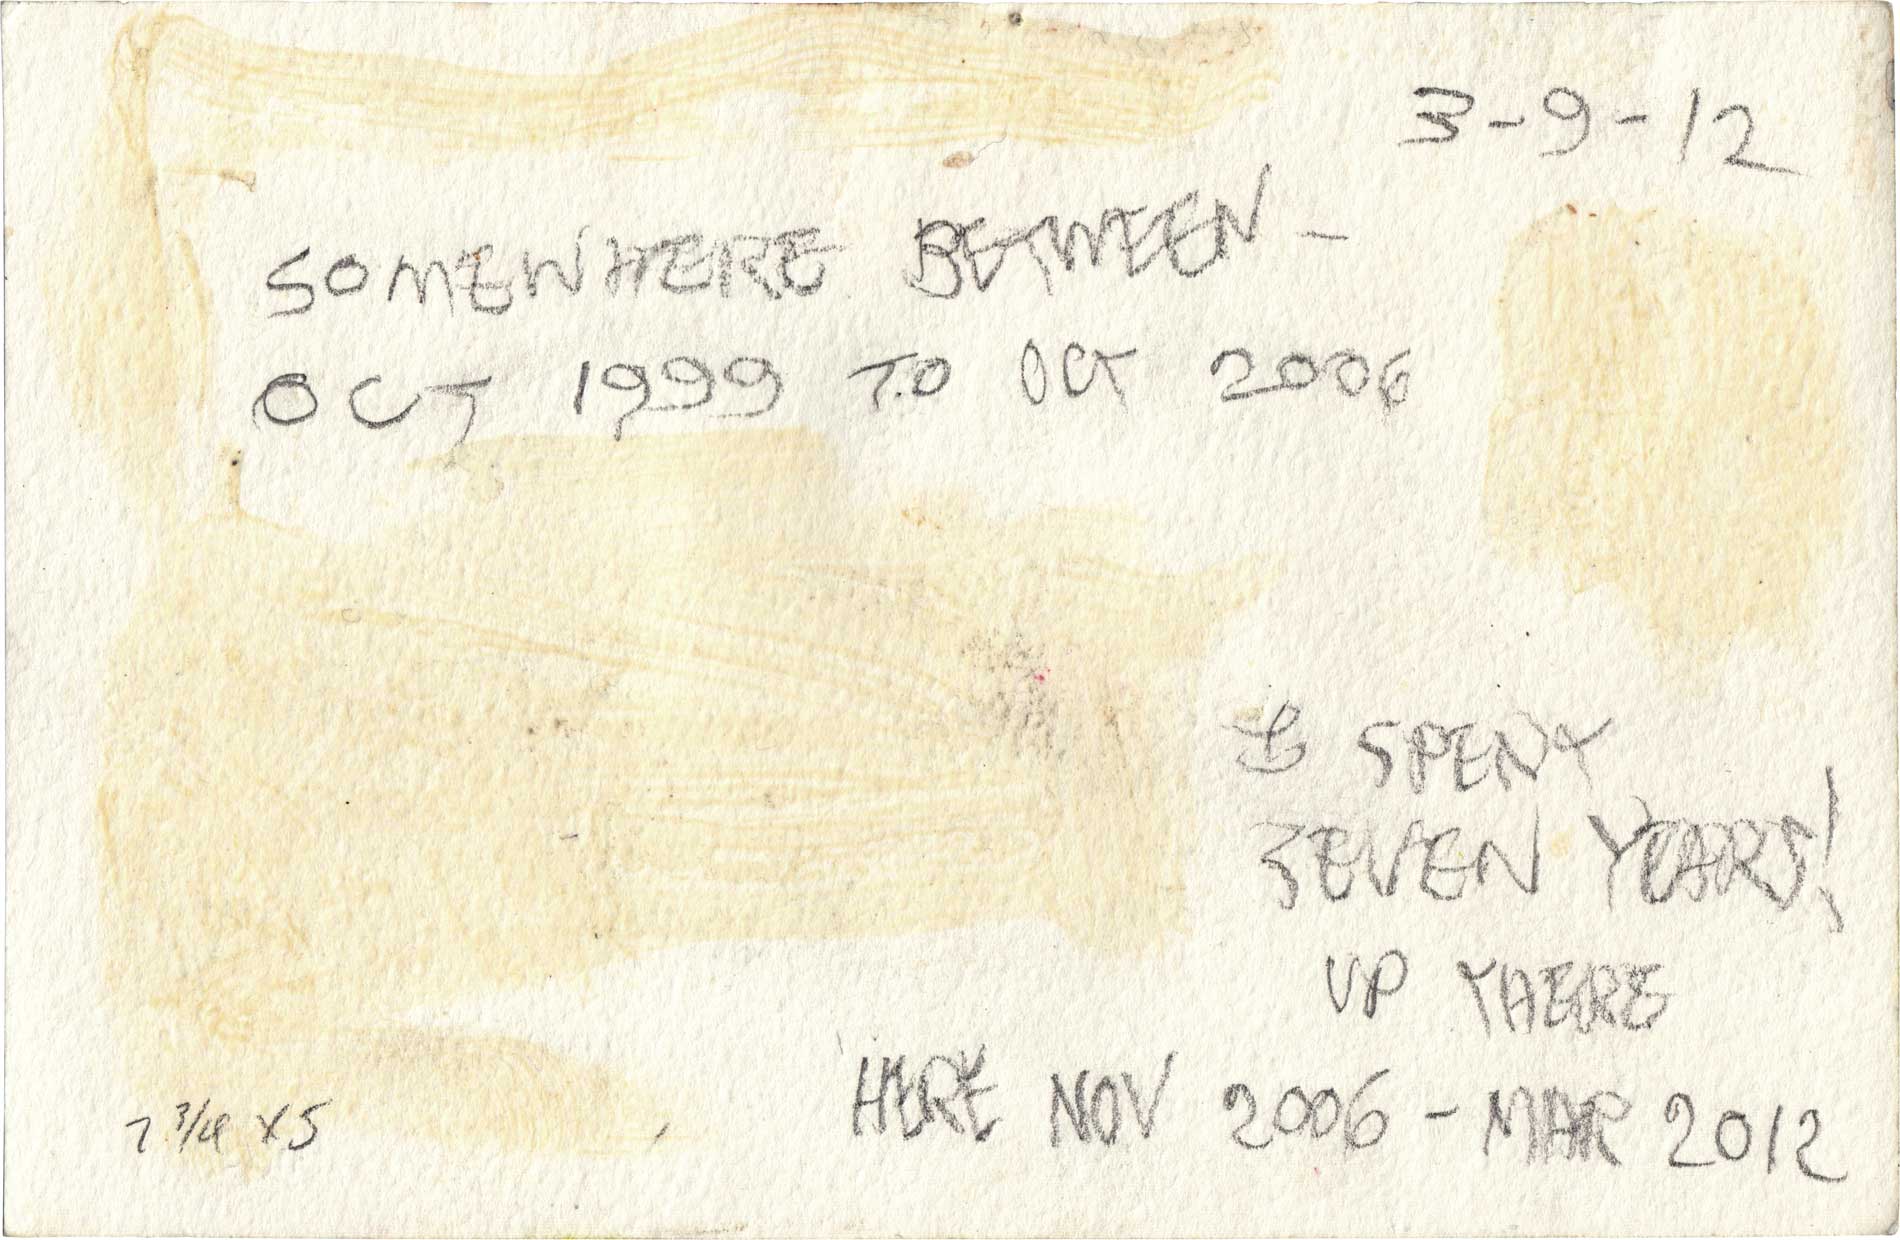 3-9-12
SOMEWHERE BETWEEN -
OCT 1999 TO OCT 2006
I SPENT
SEVEN YEARS!
UP THERE
HERE NOV 2006 - MAR 2012
7 3/4 x 5